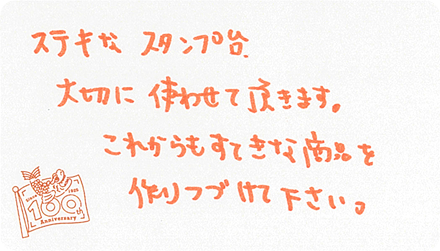 ステキな スタンプ台、
大切に 使わせて頂きます。
これからもすてきな商品を
作りつづけて下さい。
100
Anniversary